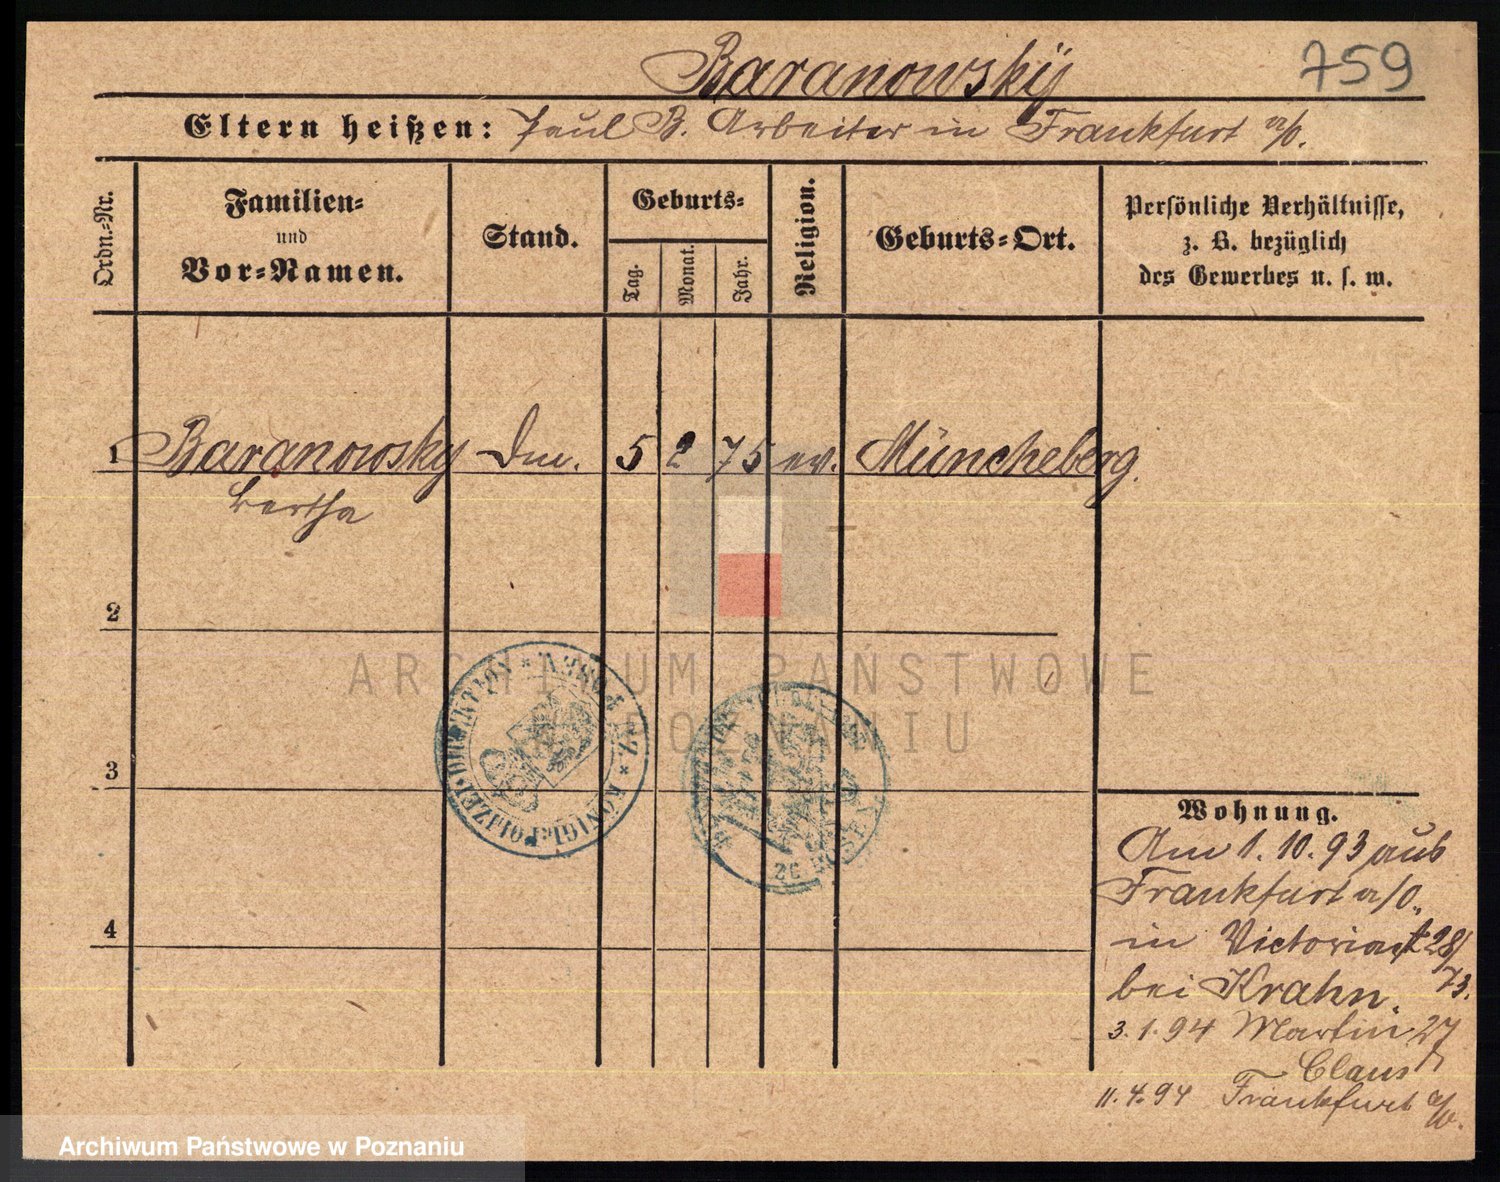 Baranowskÿ
759
Eltern heißen: Paul B. Arbeiter in Frankfurt a/O.
Ordn.-Nr.
Familien-
und
Vor-Namen.
Stand.
Geburts-
Tag.
Monat.
Jahr.
Religion.
Geburts-Ort.
Persönliche Verhältnisse,
z. B. bezüglich
des Gewerbes u. s. w.
1 Baranowsky 5 2 75 ev. Müncheberg.
Bertha
2
3
4
ARCHIWUM PAŃSTWOWE
W POZNANIU
KÖNIGL. POLIZEI-DIRECTION * ZU POSEN *
ZU POSEN
Wohnung.
Am 1.10.93 aus
Frankfurt a/O.
in Victoriast 28/
73.
bei Krahn.
3.1.94 Martin 27
Claus
11.4.94 Frankfurt a/O.
Archiwum Państwowe w Poznaniu